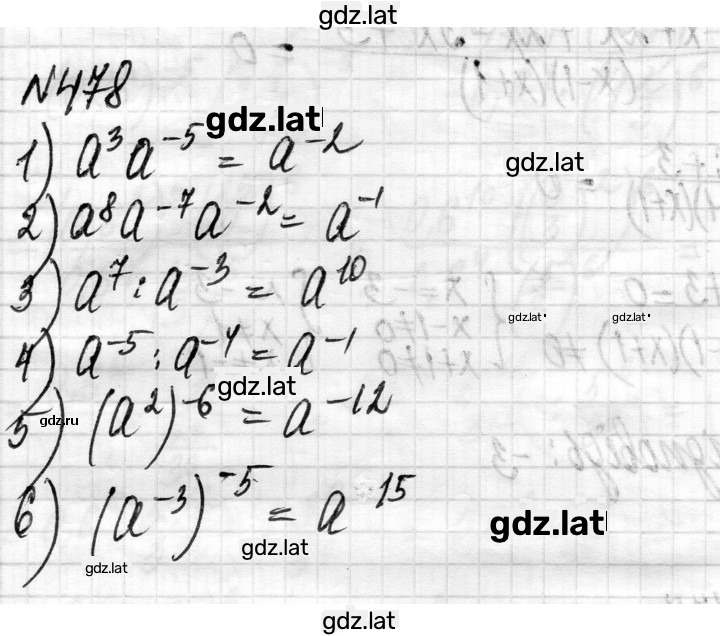 gdz.lat
№478
gdz.lat
1) a³a⁻⁵ = a⁻²
gdz.lat
2) a⁸a⁻⁷a⁻² = a⁻¹
3) a⁷ : a⁻³ = a¹⁰
gdz.lat
gdz.lat
4) a⁻⁵ : a⁻⁴ = a⁻¹
gdz.lat
5) (a²)⁻⁶ = a⁻¹²
gdz.ru
6) (a⁻³)⁻⁵ = a¹⁵
gdz.lat
gdz.lat
gdz.lat
gdz.lat